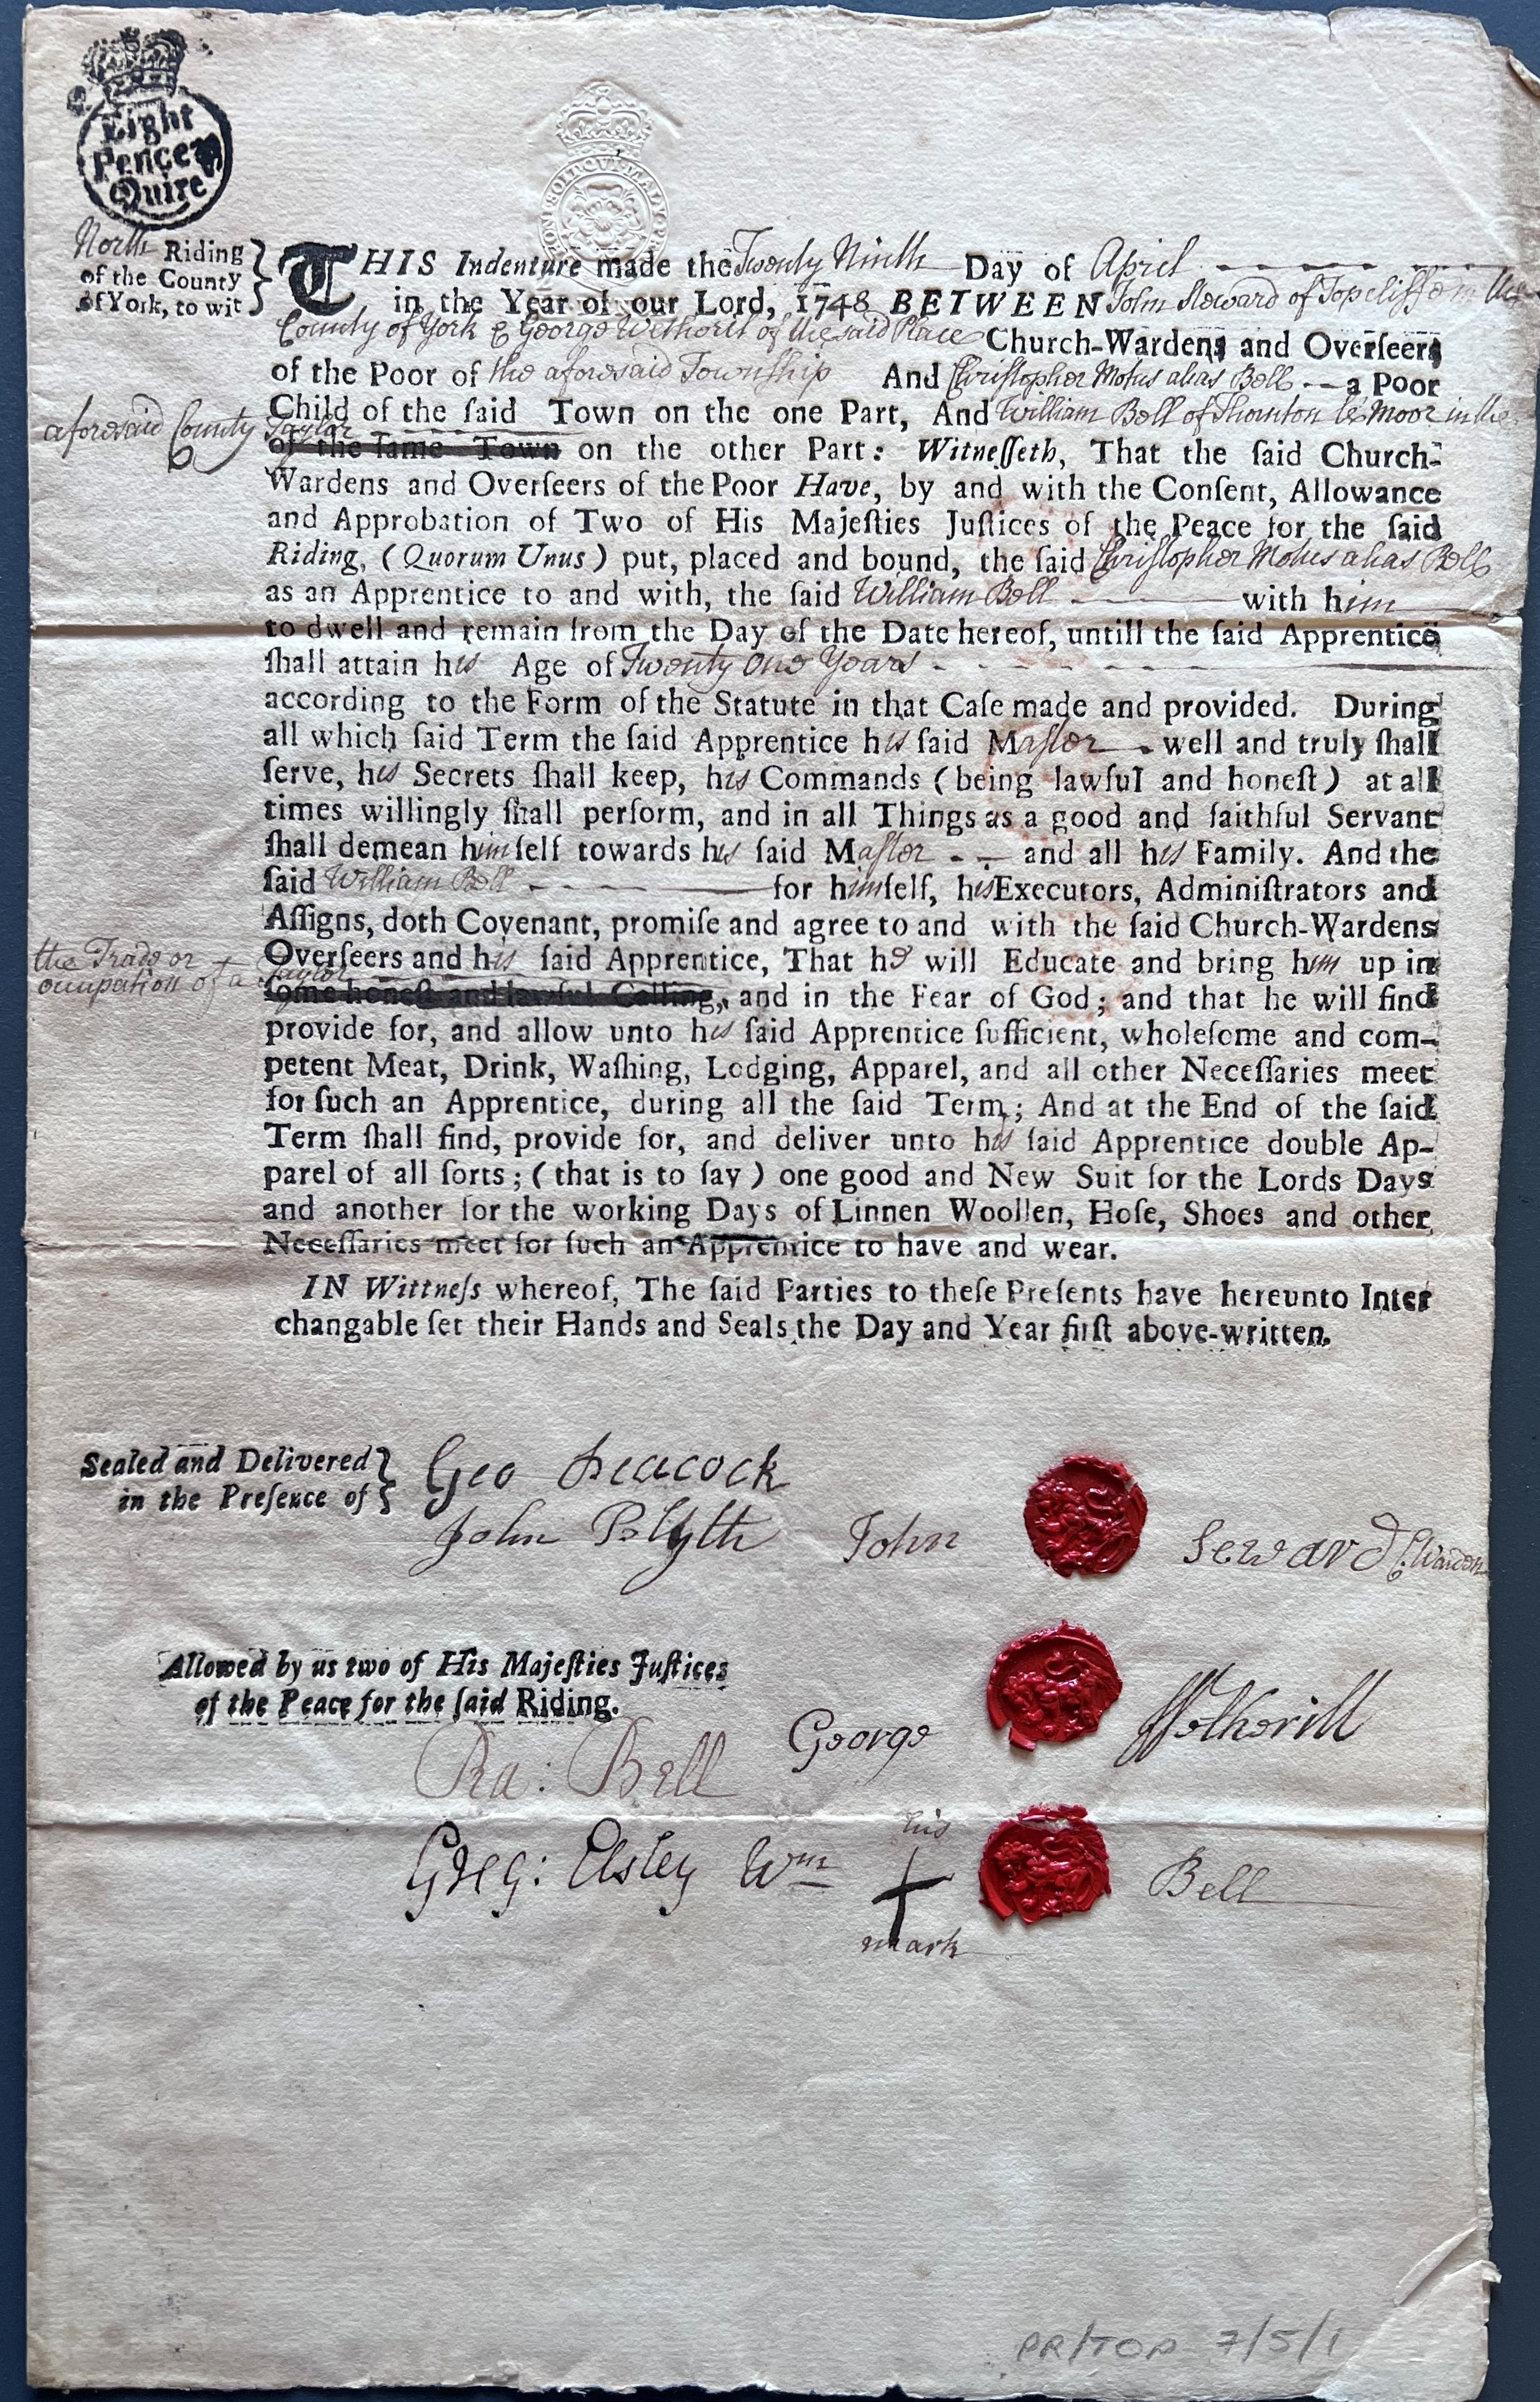 Eight
Pence ꝑ
Quire
HONI·SOIT·QVI·MAL·Y·
North Riding
of the County
of York, to wit
THIS Indenture made the Twenty Ninth Day of April
in the Year of our Lord, 1748 BETWEEN John Seward of Topcliffe in the
County of York & George Wetherill of the said Place Church-Wardens and Overſeers
of the Poor of the aforesaid Township And Chriſtopher Motus alias Bell -- a Poor
Child of the ſaid Town on the one Part, And William Bell of Thornton le Moor in the
aforesaid County Taylor
of the ſame Town on the other Part: Witneſſeth, That the ſaid Church-
Wardens and Overſeers of the Poor Have, by and with the Conſent, Allowance
and Approbation of Two of His Majeſties Juſtices of the Peace for the ſaid
Riding, (Quorum Unus) put, placed and bound, the ſaid Chriſtopher Motus alias Bell
as an Apprentice to and with, the ſaid William Bell with him
to dwell and remain from the Day of the Date hereof, untill the ſaid Apprentice
ſhall attain his Age of Twenty One Years
according to the Form of the Statute in that Caſe made and provided. During
all which ſaid Term the ſaid Apprentice his ſaid Maſter well and truly ſhall
ſerve, his Secrets ſhall keep, his Commands (being lawful and honeſt) at all
times willingly ſhall perform, and in all Things as a good and faithful Servant
ſhall demean himſelf towards his ſaid Maſter -- and all his Family. And the
ſaid William Bell for himſelf, his Executors, Adminiſtrators and
Aſſigns, doth Covenant, promiſe and agree to and with the ſaid Church-Wardens
Overſeers and his ſaid Apprentice, That he will Educate and bring him up in
the Trade or
occupation of a Taylor
ſome honeſt and lawful Calling, and in the Fear of God; and that he will find
provide for, and allow unto his ſaid Apprentice ſufficient, wholeſome and com-
petent Meat, Drink, Waſhing, Lodging, Apparel, and all other Neceſſaries meet
for ſuch an Apprentice, during all the ſaid Term; And at the End of the ſaid
Term ſhall find, provide for, and deliver unto his ſaid Apprentice double Ap-
parel of all ſorts; (that is to ſay) one good and New Suit for the Lords Days
and another for the working Days of Linnen Woollen, Hoſe, Shoes and other
Neceſſaries meet for ſuch an Apprentice to have and wear.
IN Wittneſs whereof, The ſaid Parties to theſe Preſents have hereunto Inter
changable ſet their Hands and Seals the Day and Year firſt above-written.
Sealed and Delivered
in the Preſence of
Geo Peacock
John Blyth
John Seward C:Warden
Allowed by us two of His Majeſties Juſtices
of the Peace for the ſaid Riding.
George Wetherill
Ra: Bell
Greg: Elsley
his
Wm Bell
mark
PR/TOP 7/5/1